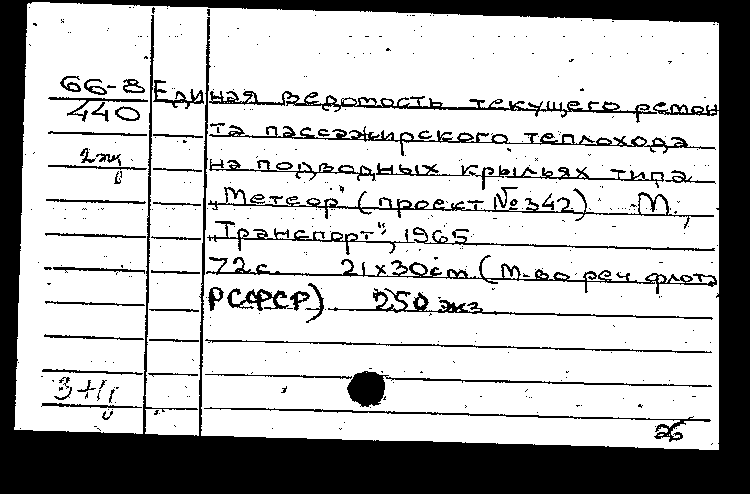 66-8
440
Единая ведомость текущего ремон
та пассажирского теплохода
на подводных крыльях типа
„Метеор" (проект №342) М.,
„Транспорт", 1965
72с. 21x30см. (М-во реч. флота
РСФСР) 250 экз
26